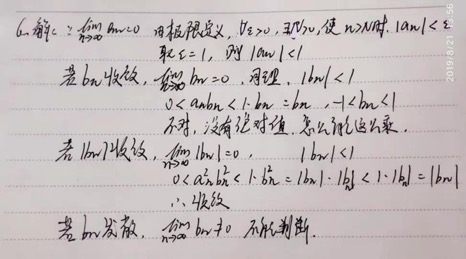 6. 解: ∵ lim_{n→∞} an=0 用极限定义, ∀ε>0, ∃N>0, 使 n>N时. |an|<ε
取ε=1, 则 |an|<1
若bn收敛, lim_{n→∞} bn=0, 同理, |bn|<1
0<anbn<1·bn=bn, -1<bn<1
不对, 没有绝对值, 怎么能这么乘.
若|bn|收敛, lim_{n→∞} |bn|=0, |bn|<1
0<an²bn²<1·bn²=|bn|·|bn|<1·|bn|=|bn|
∴收敛
若bn发散, lim_{n→∞} bn≠0 不能判断.
2019/8/21 13:56